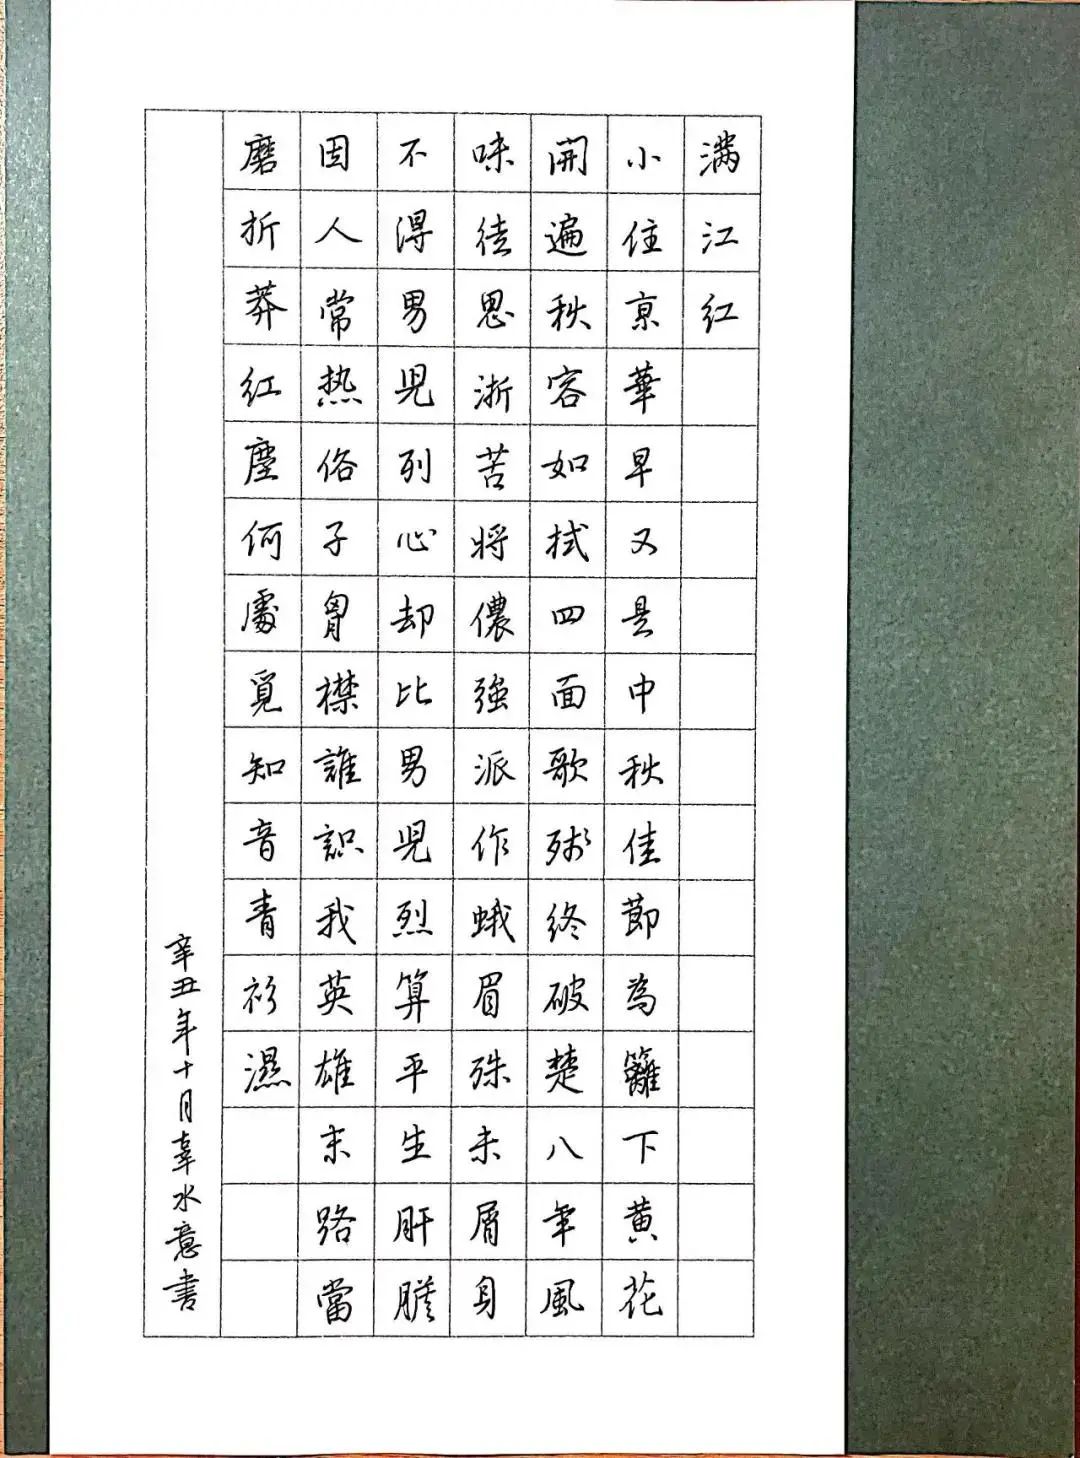 满江红
小住京華早又是中秋佳節為籬下黄花
開遍秋容如拭四面歌殘終破楚八年風
味徒思浙苦將儂強派作蛾眉殊未屑身
不得男兒列心却比男兒烈算平生肝膽
因人常热俗子胷襟誰識我英雄末路當
磨折莽红塵何處覓知音青衫濕
辛丑年十月水意書